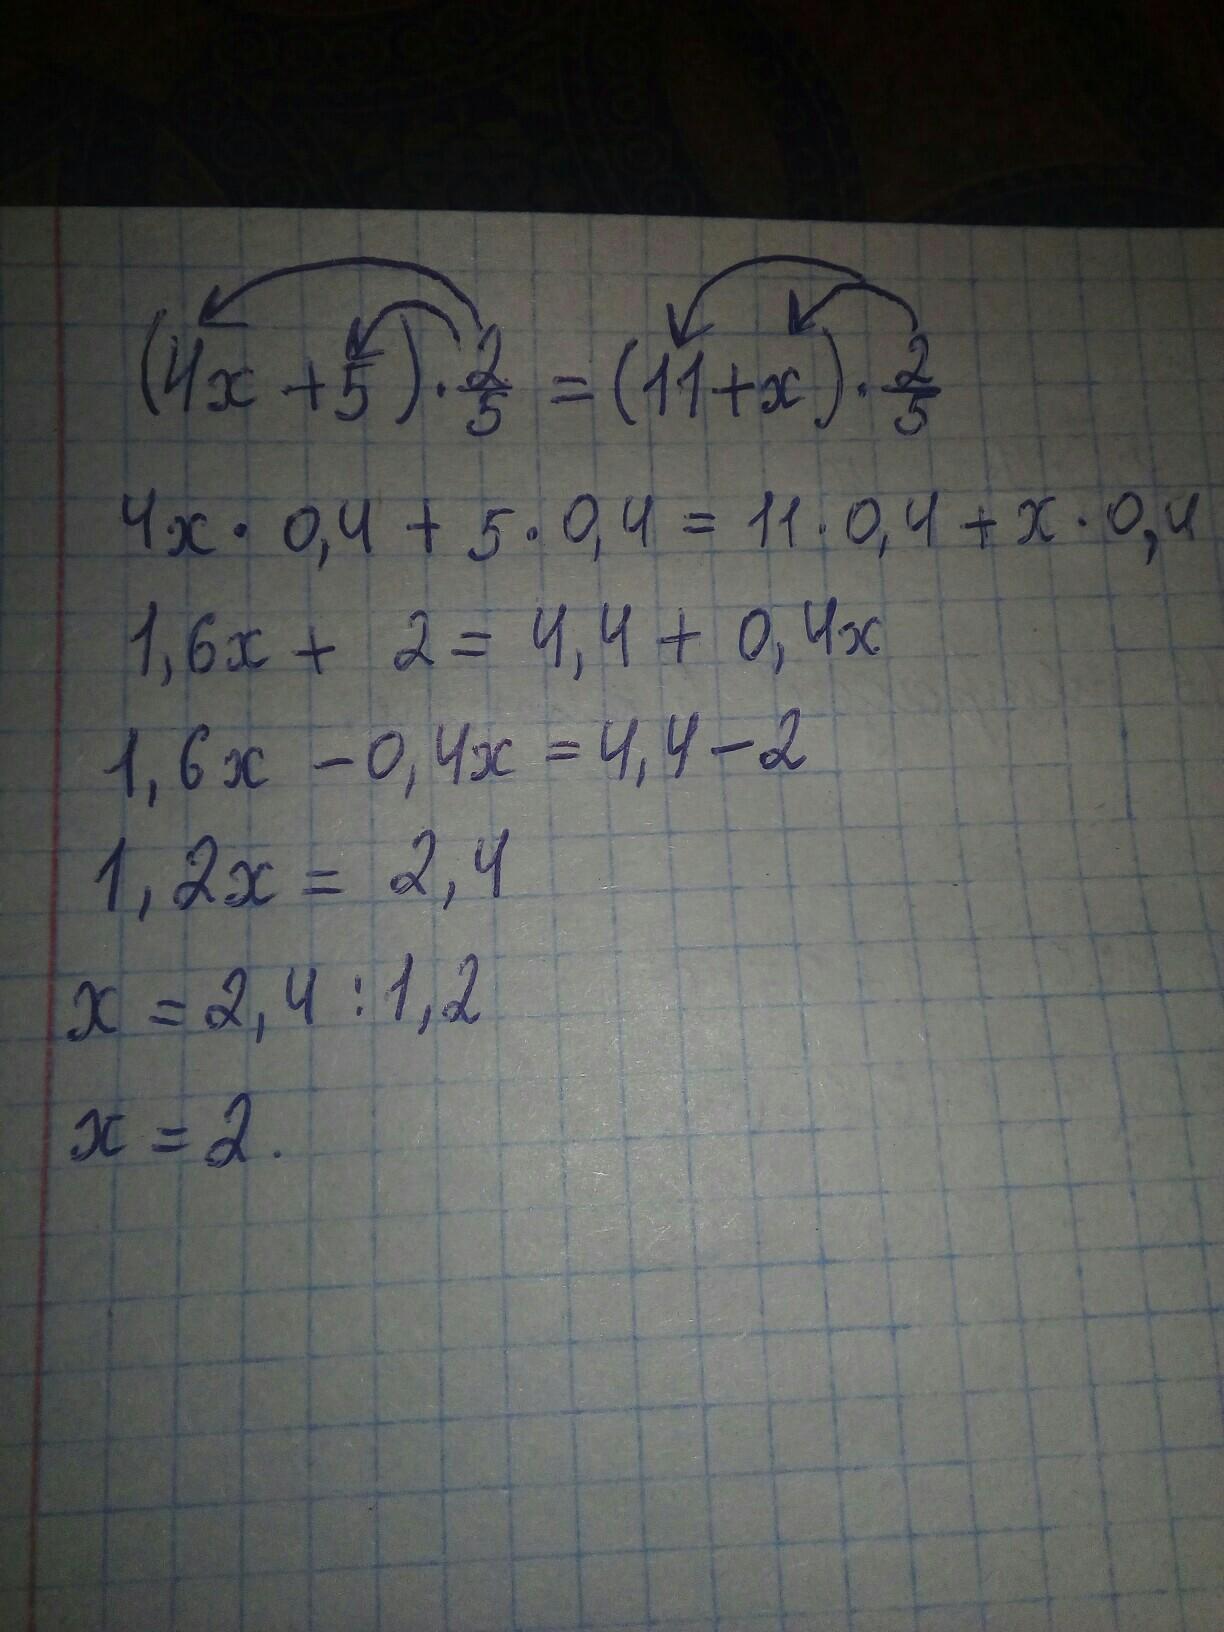 (4x + 5) · 2/5 = (11 + x) · 2/5
4x · 0,4 + 5 · 0,4 = 11 · 0,4 + x · 0,4
1,6x + 2 = 4,4 + 0,4x
1,6x - 0,4x = 4,4 - 2
1,2x = 2,4
x = 2,4 : 1,2
x = 2.